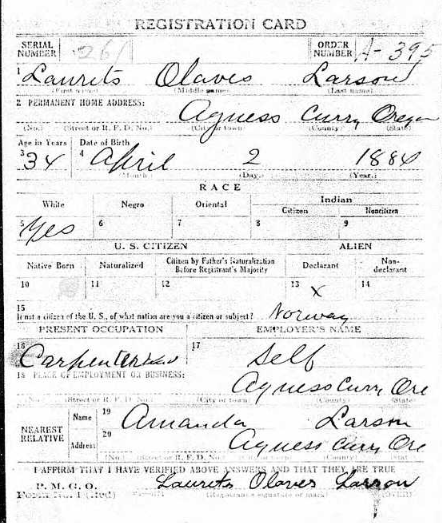 REGISTRATION CARD
SERIAL NUMBER 261 ORDER NUMBER A-395
1 Laurits Olaves Larson
(First name) (Middle name) (Last name)
2 PERMANENT HOME ADDRESS:
Agness Curry Oregon
(No.) (Street or R. F. D. No.) (City or town) (County) (State)
Age in Years Date of Birth
3 34 4 April 2 1884
(Month) (Day) (Year)
RACE
White Negro Oriental Indian
Citizen Noncitizen
5 Yes 6 7 8 9
U. S. CITIZEN ALIEN
Native Born Naturalized Citizen by Father's Naturalization Before Registrant's Majority Declarant Non-declarant
10 11 12 13 X 14
15
If not a citizen of the U. S., of what nation are you a citizen or subject? Norway
PRESENT OCCUPATION EMPLOYER'S NAME
16 Carpenter 17 Self
18 PLACE OF EMPLOYMENT OR BUSINESS:
Agness Curry Ore
(No.) (Street or R. F. D. No.) (City or town) (County) (State)
NEAREST RELATIVE Name 19 Amanda Larson
Address 20 Agness Curry Ore
(No.) (Street or R. F. D. No.) (City or town) (County) (State)
I AFFIRM THAT I HAVE VERIFIED ABOVE ANSWERS AND THAT THEY ARE TRUE
P. M. G. O. Laurits Olaves Larson
Form No. 1 (Red) (Registrant's signature or mark)